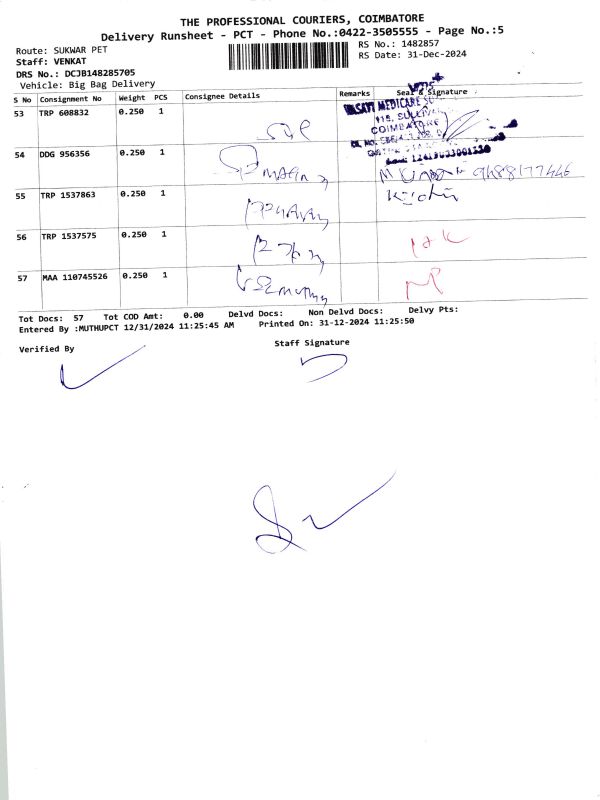 THE PROFESSIONAL COURIERS, COIMBATORE
Delivery Runsheet - PCT - Phone No.:0422-3505555 - Page No.:5
Route: SUKWAR PET
RS No.: 1482857
Staff: VENKAT
RS Date: 31-Dec-2024
DRS No.: DCJB148285705
Vehicle: Big Bag Delivery
S No Consignment No Weight PCS Consignee Details Remarks Seal & Signature
53 TRP 608832 0.250 1
VASAVI MEDICARE
COIMBATORE
54 DDG 956356 0.250 1
9488177446
55 TRP 1537863 0.250 1
56 TRP 1537575 0.250 1
57 MAA 110745526 0.250 1
Tot Docs: 57 Tot COD Amt: 0.00 Delvd Docs: Non Delvd Docs: Delvy Pts:
Entered By :MUTHUPCT 12/31/2024 11:25:45 AM Printed On: 31-12-2024 11:25:50
Verified By
Staff Signature